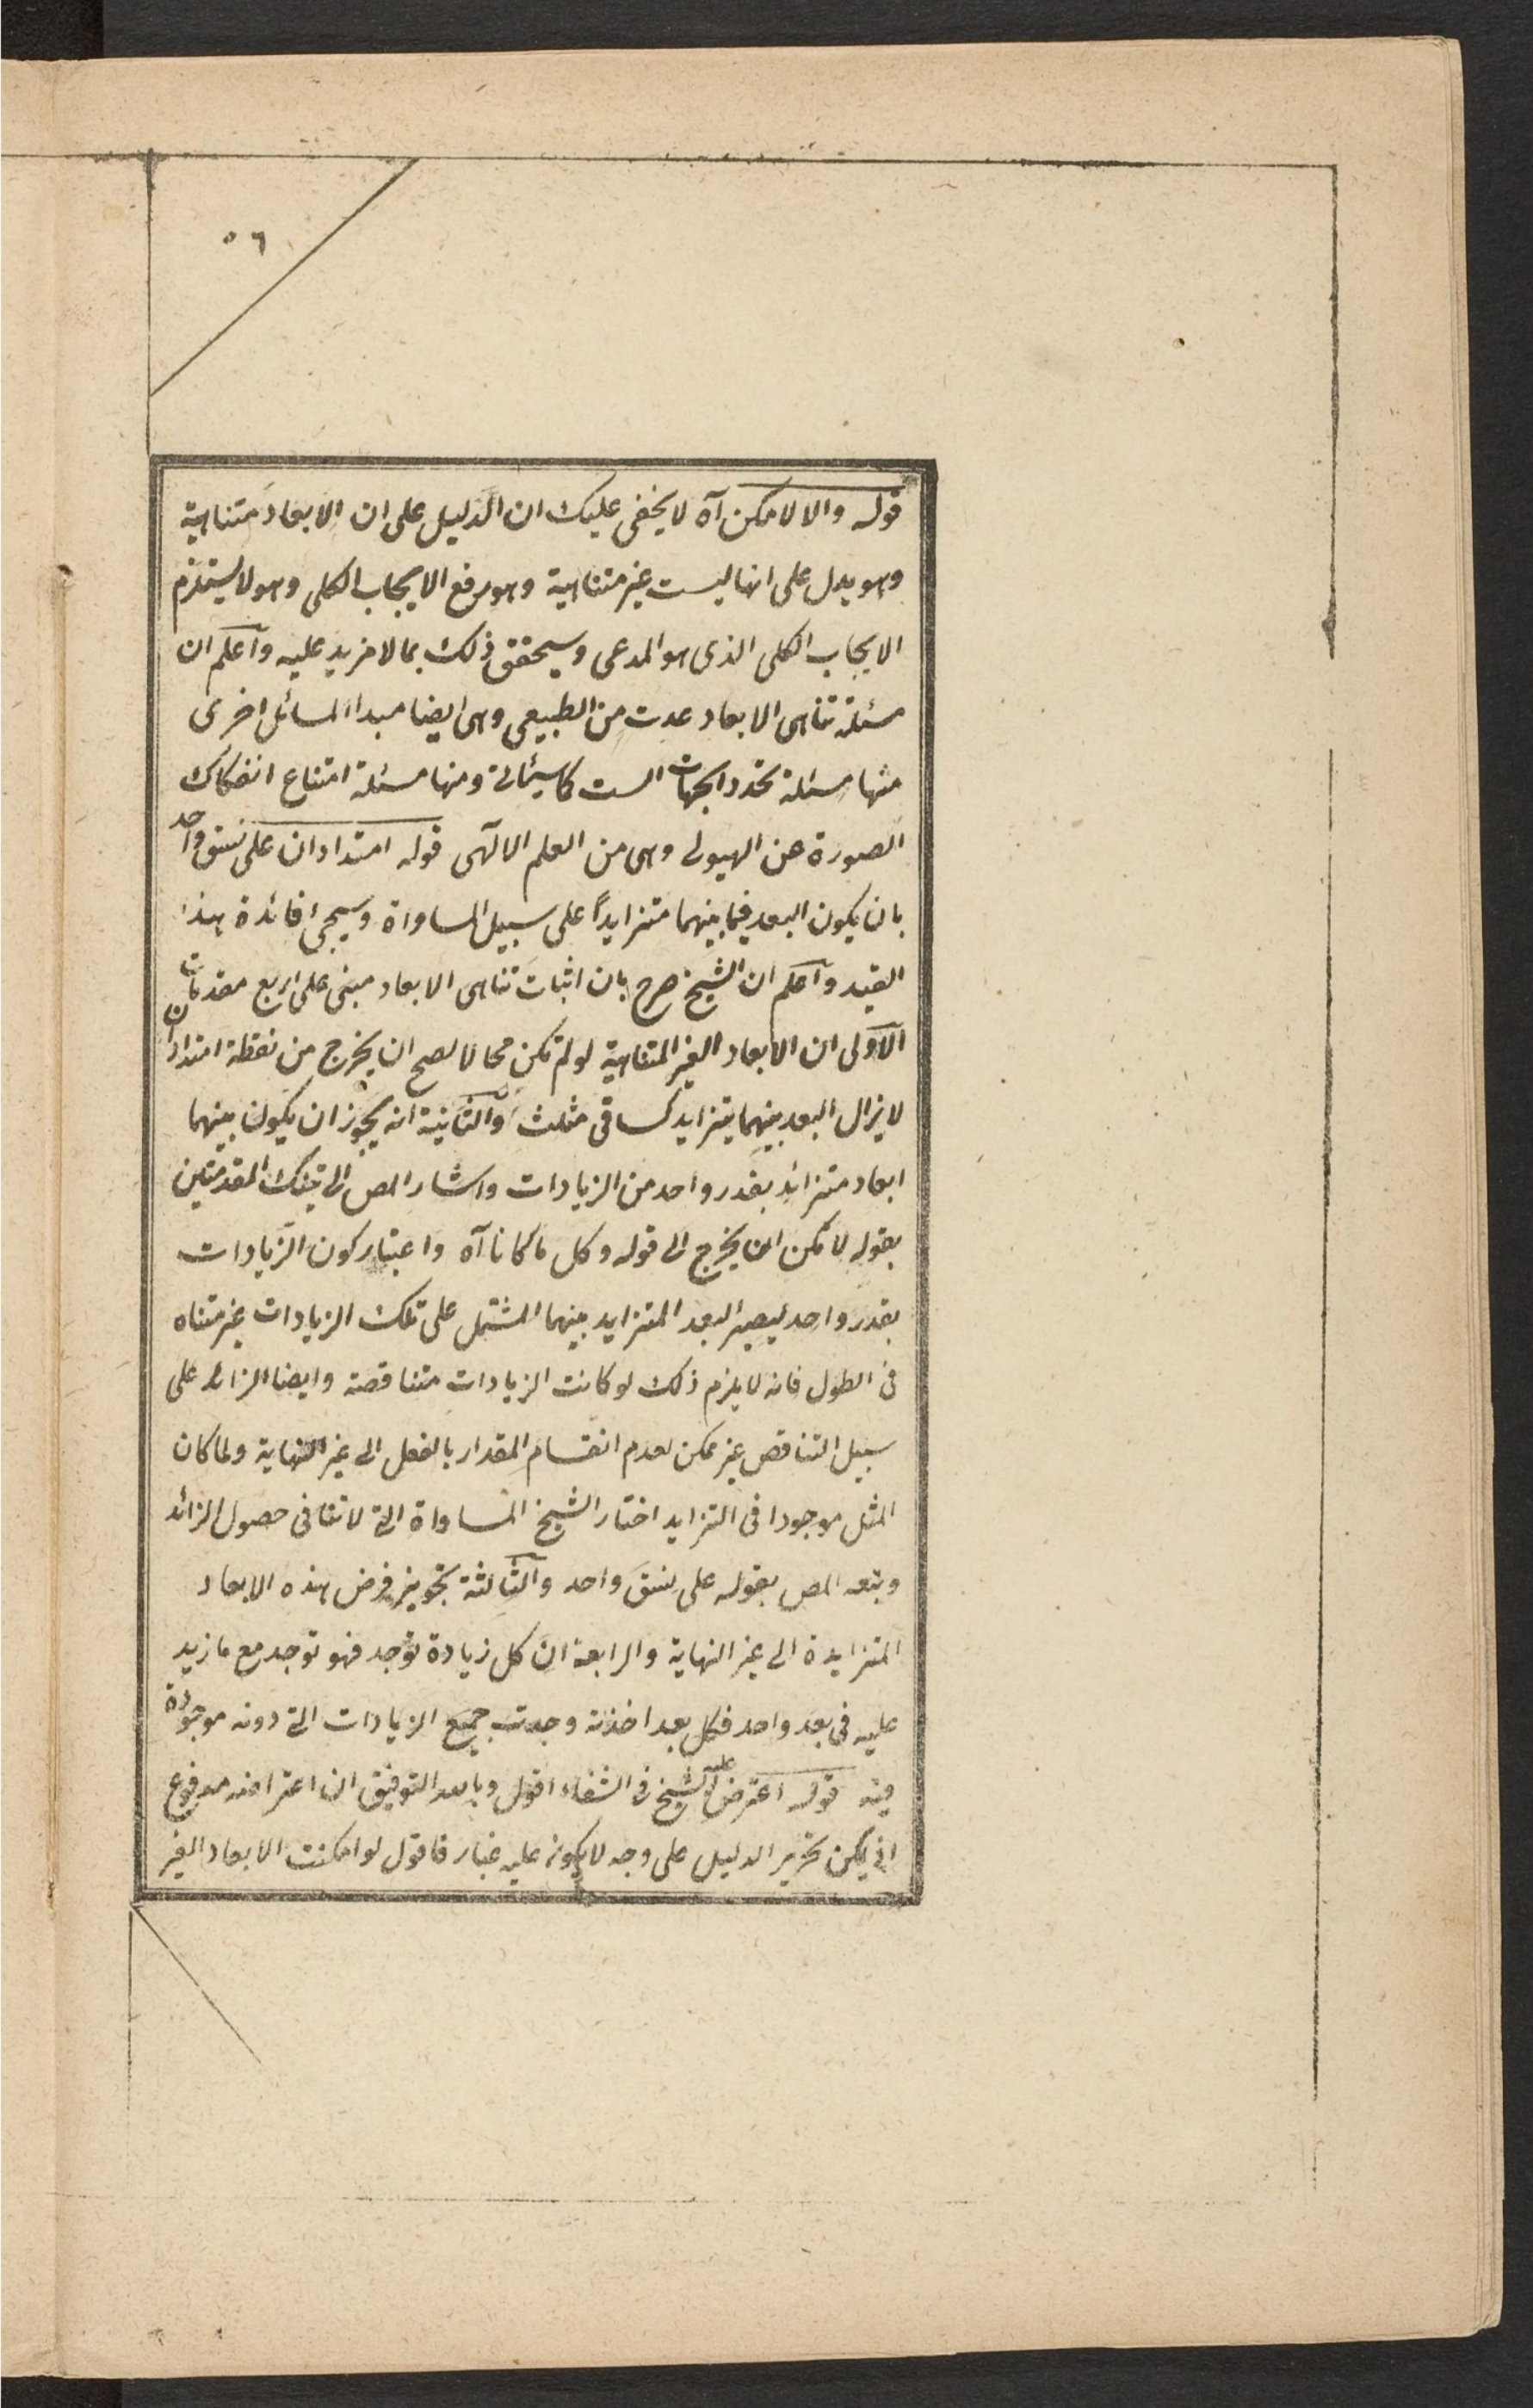 ٥٦
قوله والا لامكن آه لا يخفى عليك ان الدليل على ان الابعاد متناهية
وهو يدل على انها ليست غير متناهية وهو رفع الايجاب الكلى وهو لا يستلزم
الايجاب الكلى الذى هو المدعى وسيحقق ذلك بما لا مزيد عليه واعلم ان
مسئلة تناهى الابعاد عدت من الطبيعى وهى ايضا مبدا لمسائل اخرى
منها مسئلة تحدد الجهات الست كا سيئاتى ومنها مسئلة امتناع انفكاك
الصورة عن الهيولى وهى من العلم الالهى قوله امتدادان على نسق واحد
بان يكون البعد فيما بينهما متزايداً على سبيل المساواة وسيجئ فائدة هذا
القيد واعلم ان الشيخ صرح بان اثبات تناهى الابعاد مبنى على اربع مقدمات
الاولى ان الابعاد الغير المتناهية لو لم تكن محالا لصح ان يخرج من نقطة امتدادان
لا يزال البعد بينهما يتزايد كساقى مثلث والثانية انه يجوز ان يكون بينهما
ابعاد متزائد بقدر واحد من الزيادات واشار المص الى تينك المقدمتين
بقوله لا مكن ان يخرج الى قوله وكل ما كانا آه واعتبار كون الزيادات
بقدر واحد ليصير البعد المتزايد بينهما المشتمل على تلك الزيادات غير متناه
فى الطول فانه لا يلزم ذلك لو كانت الزيادات متناقصة وايضا الزائد على
سبيل التناقص غير ممكن لعدم انقسام المقدار بالفعل الى غير النهاية ولما كان
المثل موجودا فى التزايد اختار الشيخ المساواة التى لا تنافى حصول الزائد
وتبعه المص بقوله على نسق واحد والثالثة تجويز فرض هذه الابعاد
المتزايدة الى غير النهاية والرابعة ان كل زيادة توجد فهو توجد مع ما زيد
عليه فى بعد واحد فكل بعد اخذته وجدت جميع الزيادات التى دونه موجودة
فيه قوله اعترض عليه الشيخ فى الشفاء اقول وبالله التوفيق ان اعتراضه مدفوع
اذ يمكن تحرير الدليل على وجه لا يكون عليه غبار فاقول لو امكنت الابعاد الغير